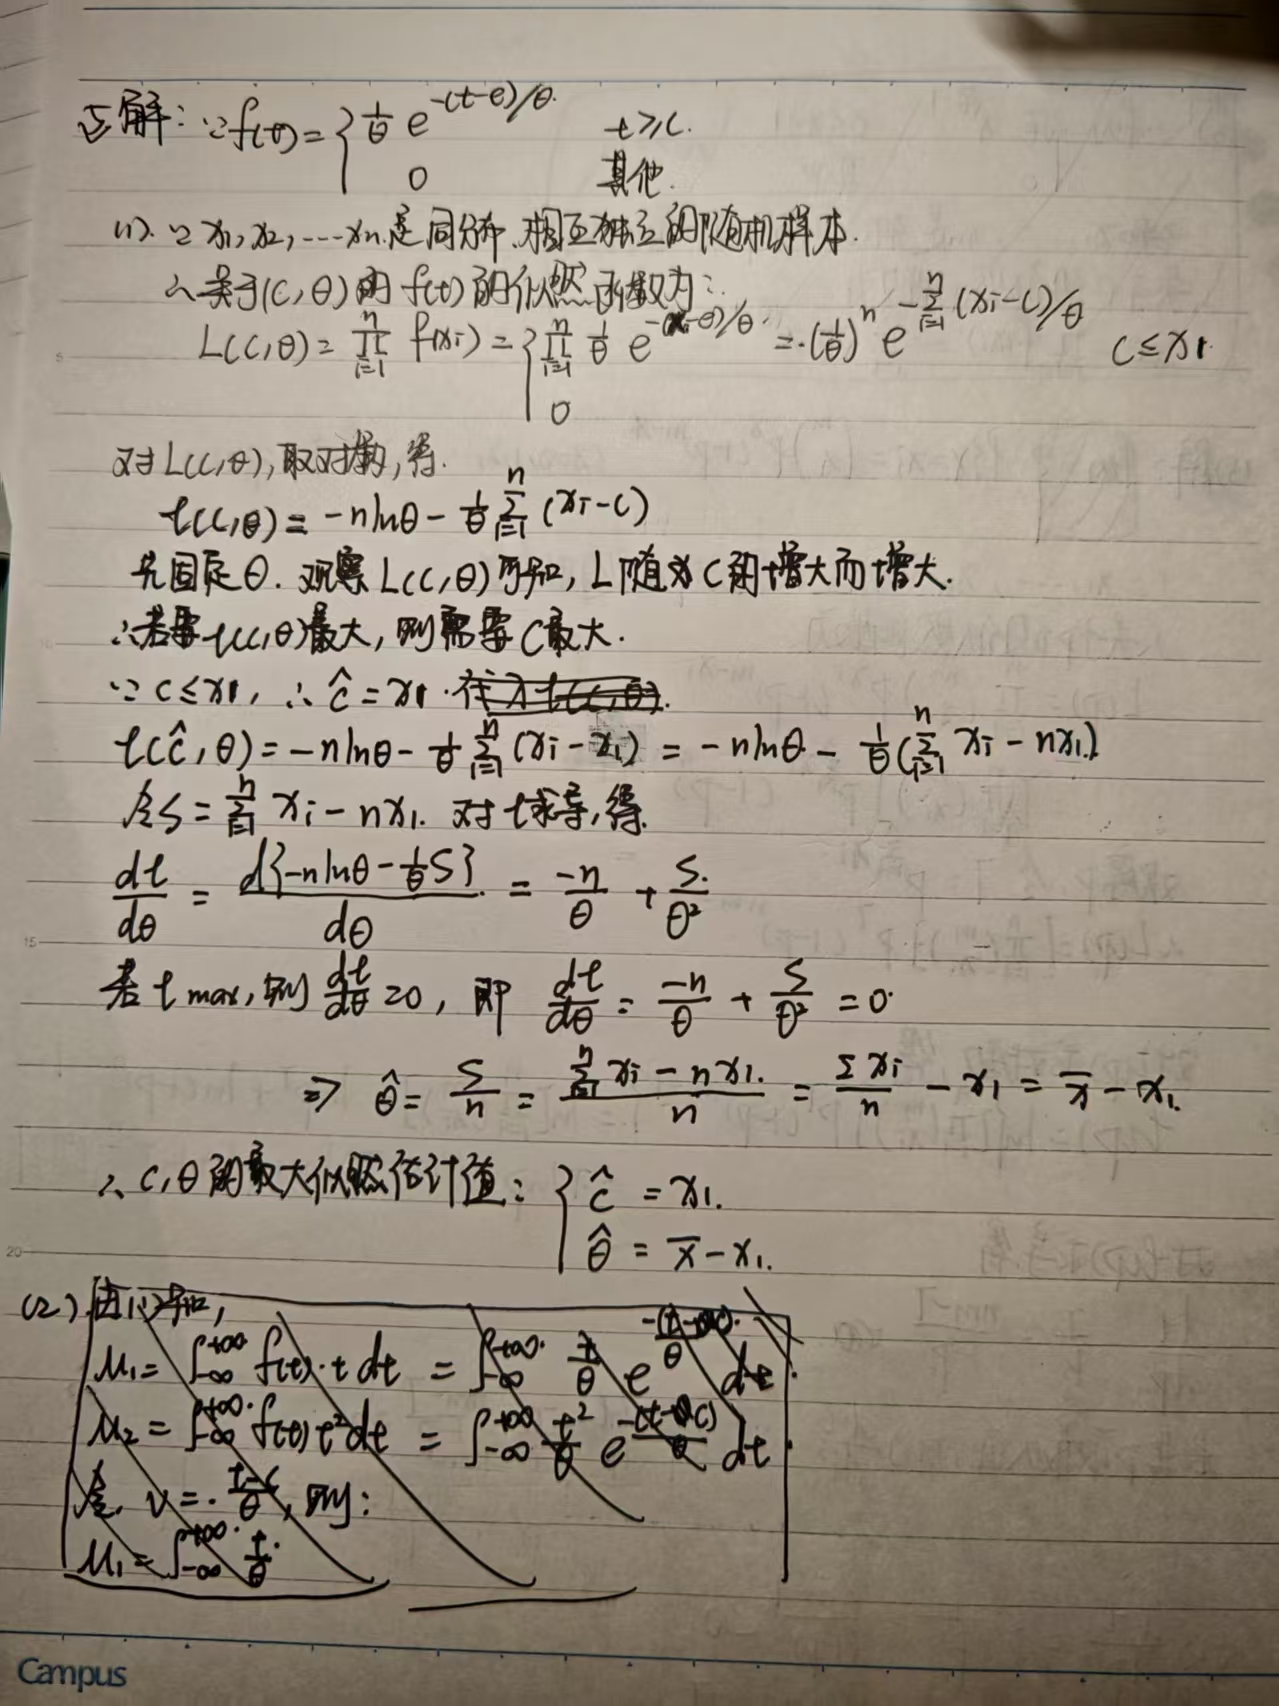 5解：∵f(t)={ 1/θ e^{-(t-c)/θ} t≥c.
0 其他.
(1). ∵ x₁, x₂, ⋯xₙ是同分布、相互独立的随机样本.
∴关于(c,θ)的f(t)的似然函数为:
L(c,θ)=∏_{i=1}^{n} f(xᵢ)={ ∏_{i=1}^{n} 1/θ e^{-(xᵢ-θ)/θ} =(1/θ)ⁿ e^{-∑_{i=1}^{n}(xᵢ-c)/θ} c≤x₁.
0
对L(c,θ),取对数,得.
l(c,θ)= -nlnθ - 1/θ ∑_{i=1}^{n} (xᵢ-c)
先固定θ. 观察L(c,θ)可知, L随着c的增大而增大.
∴若要l(c,θ)最大, 则需要c最大.
∵ c≤x₁, ∴ ĉ=x₁. 代入l(c,θ).
l(ĉ,θ)= -nlnθ - 1/θ ∑_{i=1}^{n} (xᵢ-x₁) = -nlnθ - 1/θ (∑_{i=1}^{n} xᵢ - nx₁).
令S=∑_{i=1}^{n} xᵢ-nx₁. 对l求导, 得.
dl/dθ = d{-nlnθ-1/θ S}/dθ = -n/θ + S/θ²
若l max, 则 dl/dθ=0, 即 dl/dθ = -n/θ + S/θ² =0.
⇒ θ̂= S/n = (∑_{i=1}^{n} xᵢ-nx₁)/n = ∑xᵢ/n - x₁ = x̄-x₁.
∴ c,θ的最大似然估计值: { ĉ =x₁.
θ̂ = x̄-x₁.
(2).由(1)知,
μ₁= ∫_{-∞}^{+∞} f(t)·t dt = ∫_{-∞}^{+∞} t/θ e^{-(t-c)/θ} dt.
μ₂ = ∫_{-∞}^{+∞} f(t) t²dt = ∫_{-∞}^{+∞} t²/θ e^{-(t-c)/θ} dt
令 v= (t-c)/θ, 则:
μ₁= ∫_{-∞}^{+∞} t/θ
Campus